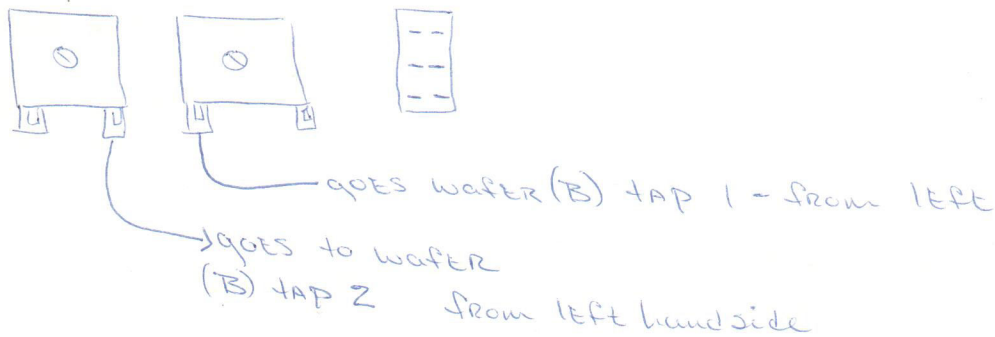 goes wafer (B) tap 1 - from left
goes to wafer
(B) tap 2 from left handside